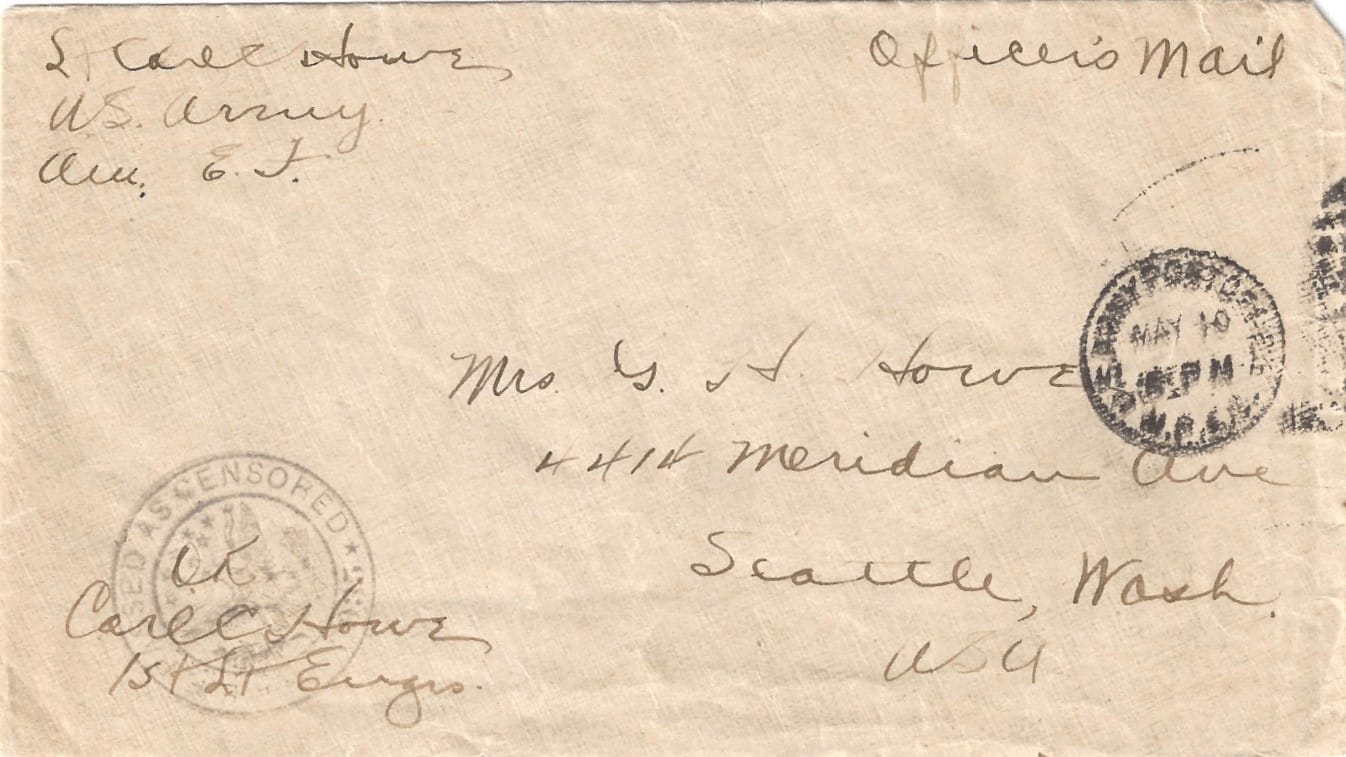 Lt Carl C Howe
U.S. Army.
Am. E. F.
Officer's Mail
MAY 10
PM
Mrs. G. H. Howe
4414 Meridian Ave
Seattle, Wash.
USA
AS CENSORED
O.K.
Carl C Howe
1st Lt Engrs.